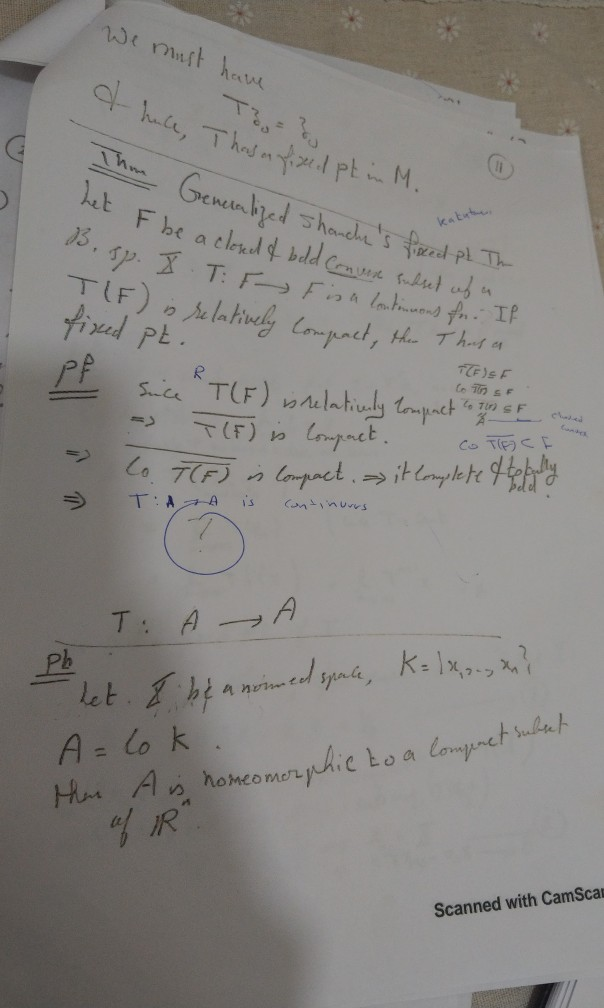 We must have
Tz₀ = z₀
& hence, T has a fixed pt in M.
11
Thm Generalized Shauder's fixed pt Th
Let F be a closed & bdd Convex subset of a
B. sp. X. T: F → F is a continuous fn. If
T(F) is relatively compact, then T has a
fixed pt.
Pf
Since T(F) is relatively compact
R
T(F) ⊆ F
Co T(F) ⊆ F
Co T(F) ⊆ F
closed
convex
Co T(F) ⊂ F
⇒ T(F) is compact.
⇒ Co T(F) is compact. ⇒ it complete & totally
bdd.
⇒ T: A → A is continuous
?
T: A → A
Pb
Let X be a normed space, K = {x₁, .., xₙ}
A = Co K.
then A is homeomorphic to a compact subset
of ℝⁿ.
Scanned with CamScan